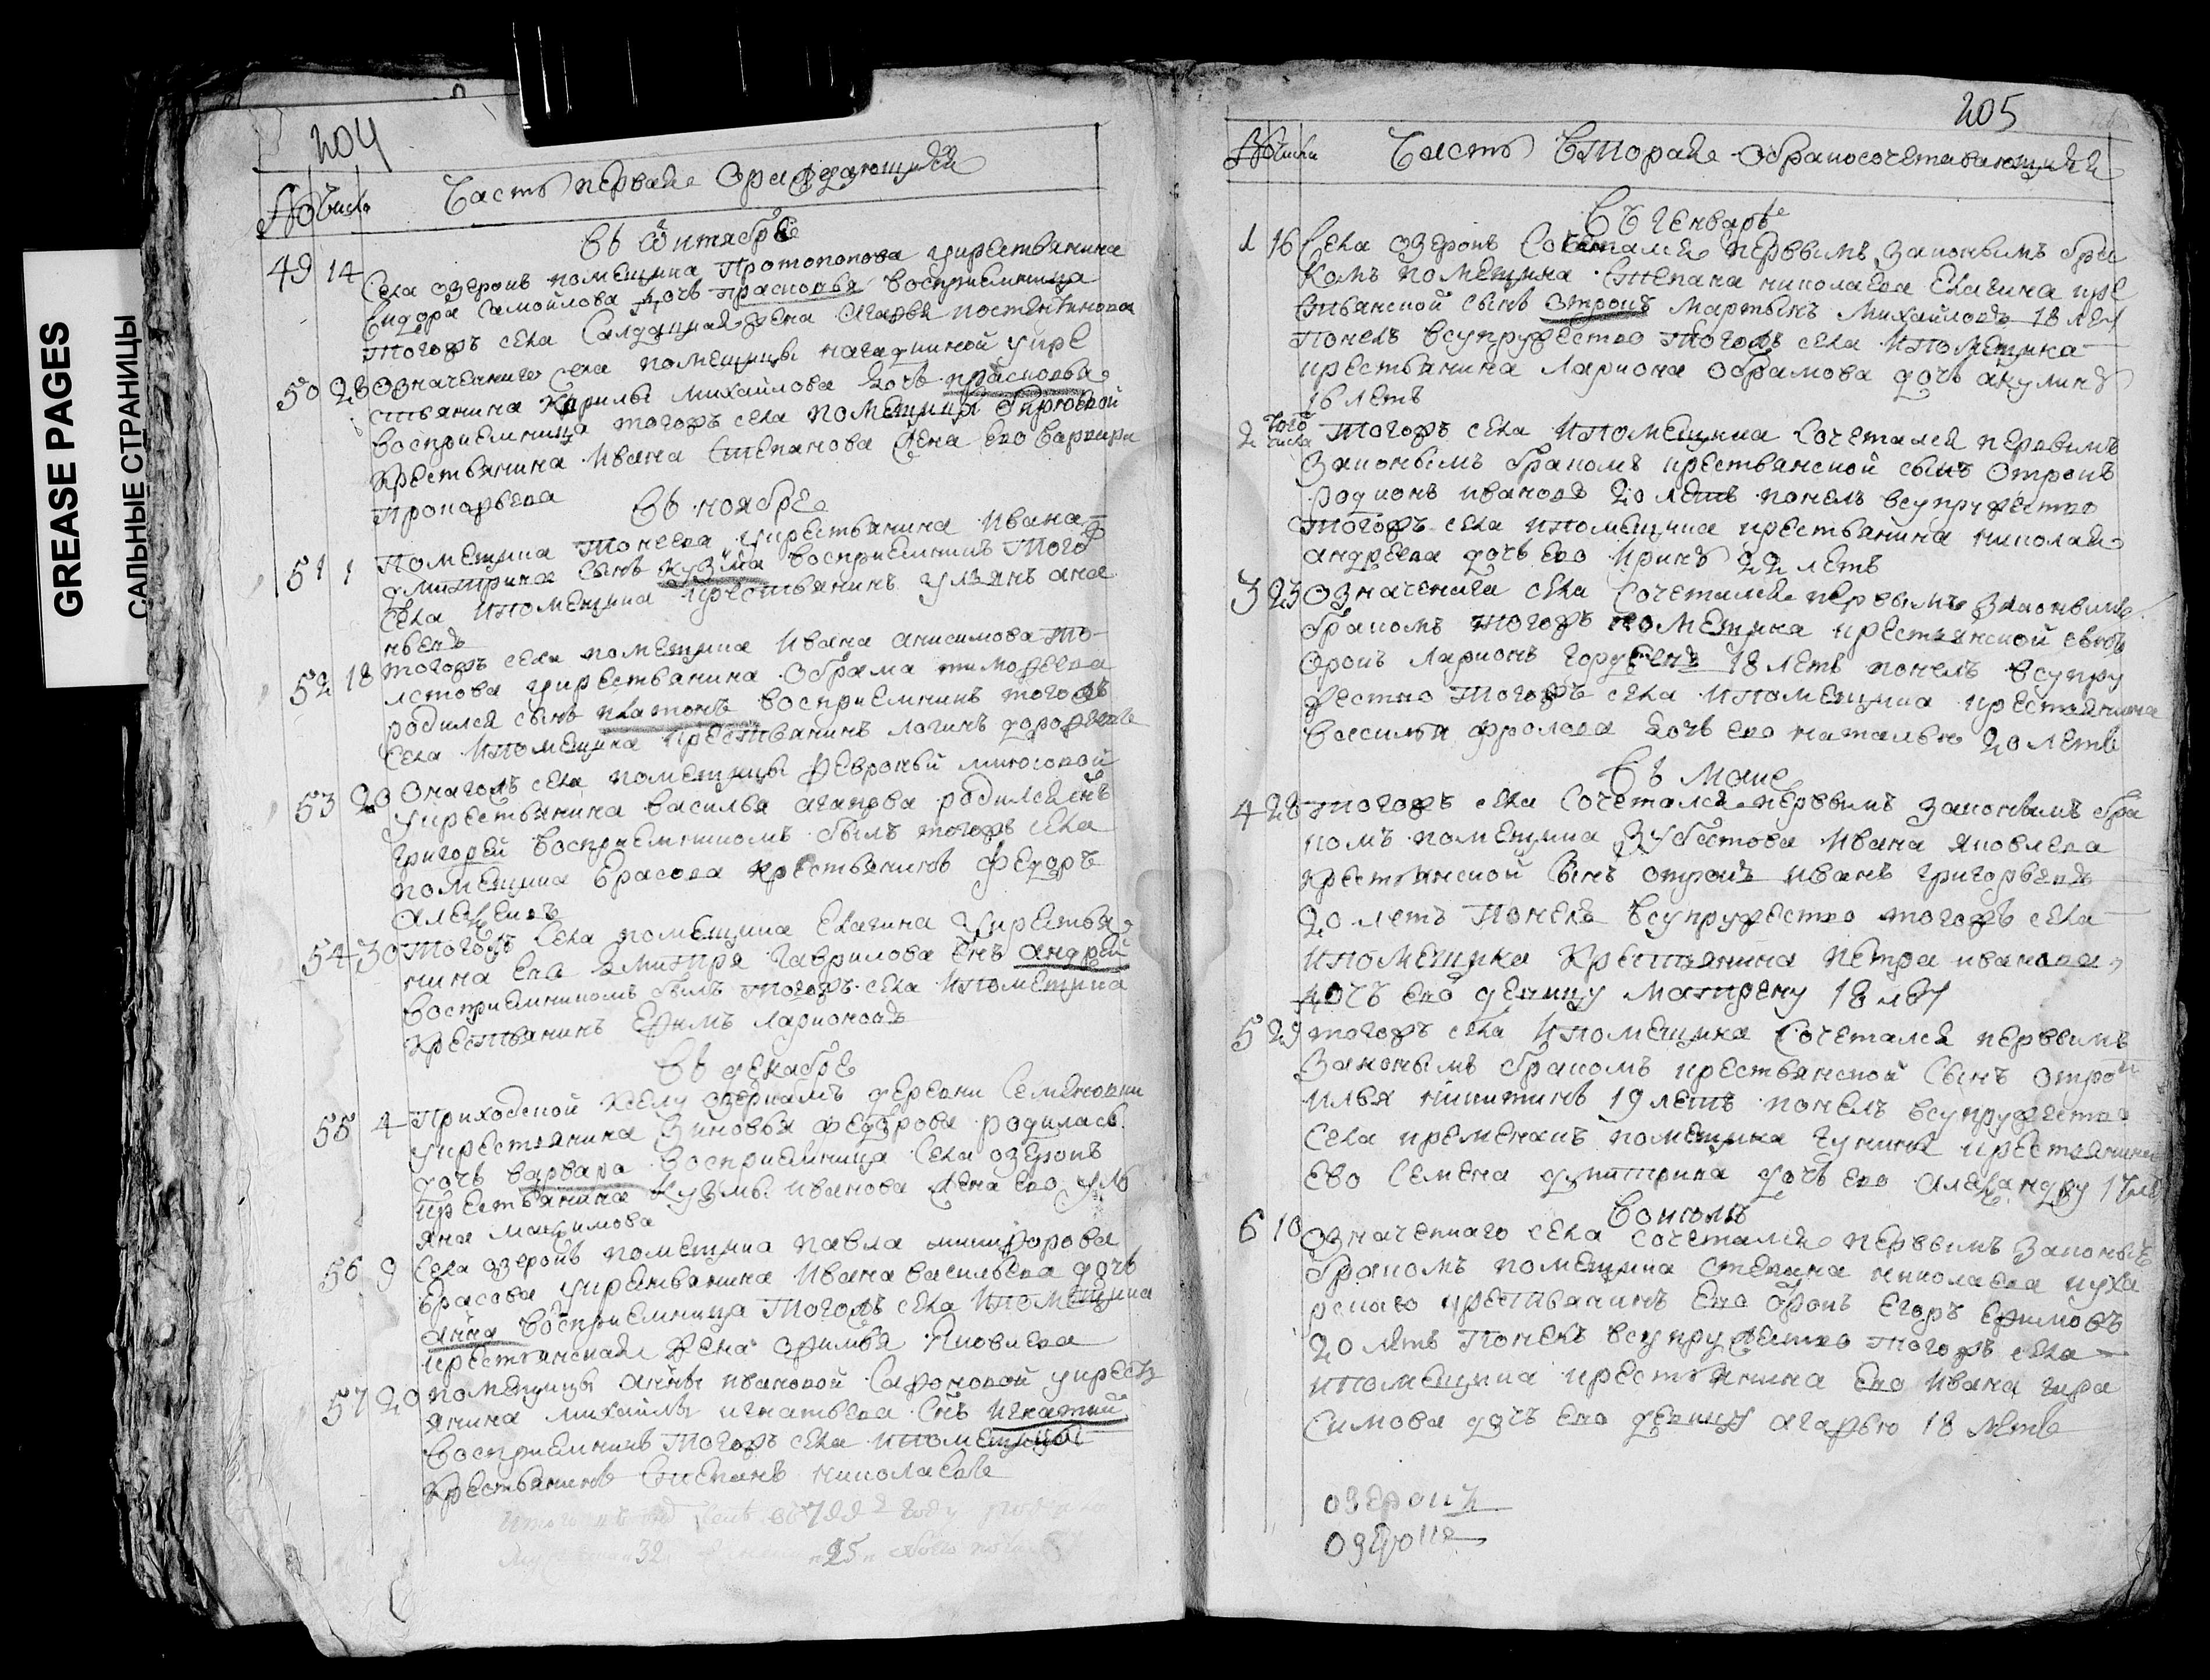 GREASE PAGES
САЛЬНЫЕ СТРАНИЦЫ
204
№ числа Часть первая о раждающихся
въ октябре
49 14 Села озерокъ помещика Протопопова у крестьянина
Сидора Самойлова дочь Прасковья восприемница
тогожъ села Салдацкая жена Агафья
50 28 означеннаго села помещицы у кре
стьянина Кирилы Михайлова дочь прасковья
восприемница тогожъ села помещицы Бирюковой
крестьянина Ивана Степанова жена ево варвара
Прокофьева
въ ноябре
51 1 Помещика у крестьянина Ивана
дмитрина сынъ кузма восприемникъ тогожъ
села ипомещика крестьянинъ ульянъ ана
ньевъ
52 18 тогожъ села помещика Ивана анисимова То
лстова у крестьянина Абрама тимофеева
родился сынъ платонъ восприемникъ тогожъ
села ипомещика крестьянинъ логинъ дорофеевъ
53 20 Онагожъ села помещицы февроньи
у крестьянина василья агапова родился снъ
григорей восприемникомъ былъ тогожъ села
помещика Ерасова крестьянинъ федоръ
алексеевъ
54 30 Тогожъ села помещика Елагина у крестья
нина ево дмитрея гаврилова снъ андрей
восприемникомъ былъ тогожъ села ипомещика
крестьянинъ ефимъ ларионовъ
въ декабре
55 4 Приходской к селу озеркамъ деревни Семеновки
у крестьянина Зиновья федорова родилась
дочь варвара восприемница села озерокъ
крестьянина кузмы иванова жена ево уль
яна максимова
56 9 Села озерокъ помещика павла никифорова
Ерасова у крестьянина Ивана васильева дочь
анна восприемница тогожъ села ипомещика
крестьянская жена афимья Яковлева
57 20 помещицы анны ивановой Сафоновой у крест
янина михайлы игнатьева снъ игнатий
восприемникъ тогожъ села ипомещицы
крестьянинъ Степанъ николаевъ
году
32 25
205
№ числа Часть вторая о бракосочетавающихся
въ генваре
1 16 Села озерокъ Сочетался первымъ законнымъ бра
комъ помещика Степана николаева Елагина кре
стьянской сынъ отрокъ мартынъ Михайловъ 18 летъ
понелъ всупружество тогожъ села ипомещика
крестьянина лариона абрамова дочь акулину
16 летъ
2 того числа Тогожъ села ипомещика сочетался первымъ
законнымъ бракомъ крестьянской сынъ отрокъ
родионъ ивановъ 20 летъ понелъ всупружество
тогожъ села ипомещика крестьянина николая
андреева дочь ево ирину 22 летъ
3 23 означенага села Сочетался первымъ законнымъ
бракомъ тогожъ помещика крестьянской сынъ
отрокъ ларионъ 18 летъ понелъ всупру
жество тогожъ села ипомещика крестьянина
василья фролова дочь ево наталью 20 летъ
въ маие
4 28 тогожъ села сочетался первымъ законнымъ бра
комъ помещика Зубатова Ивана яковлева
крестьянской сынъ отрокъ иванъ григорьевъ
20 летъ понелъ всупружество тогожъ села
ипомещика крестьянина петра иванова
дочь ево девицу матрену 18 летъ
5 29 тогожъ села ипомещика Сочетался первымъ
законнымъ бракомъ крестьянской сынъ отрокъ
илья никитинъ 19 летъ понелъ всупружество
села кременокъ помещика чунина крестьянина
ево Семена дмитрина дочь ево александру 17 летъ
воиюле
6 10 означеннаго села сочетался первымъ законнымъ
бракомъ помещика степана николаева
крестьянинъ ево отрокъ егоръ ефимовъ
20 летъ понелъ всупружество тогожъ села
ипомещика крестьянина ево ивана гера
симова дочь ево девицу агафью 18 летъ
озерокъ
озерки